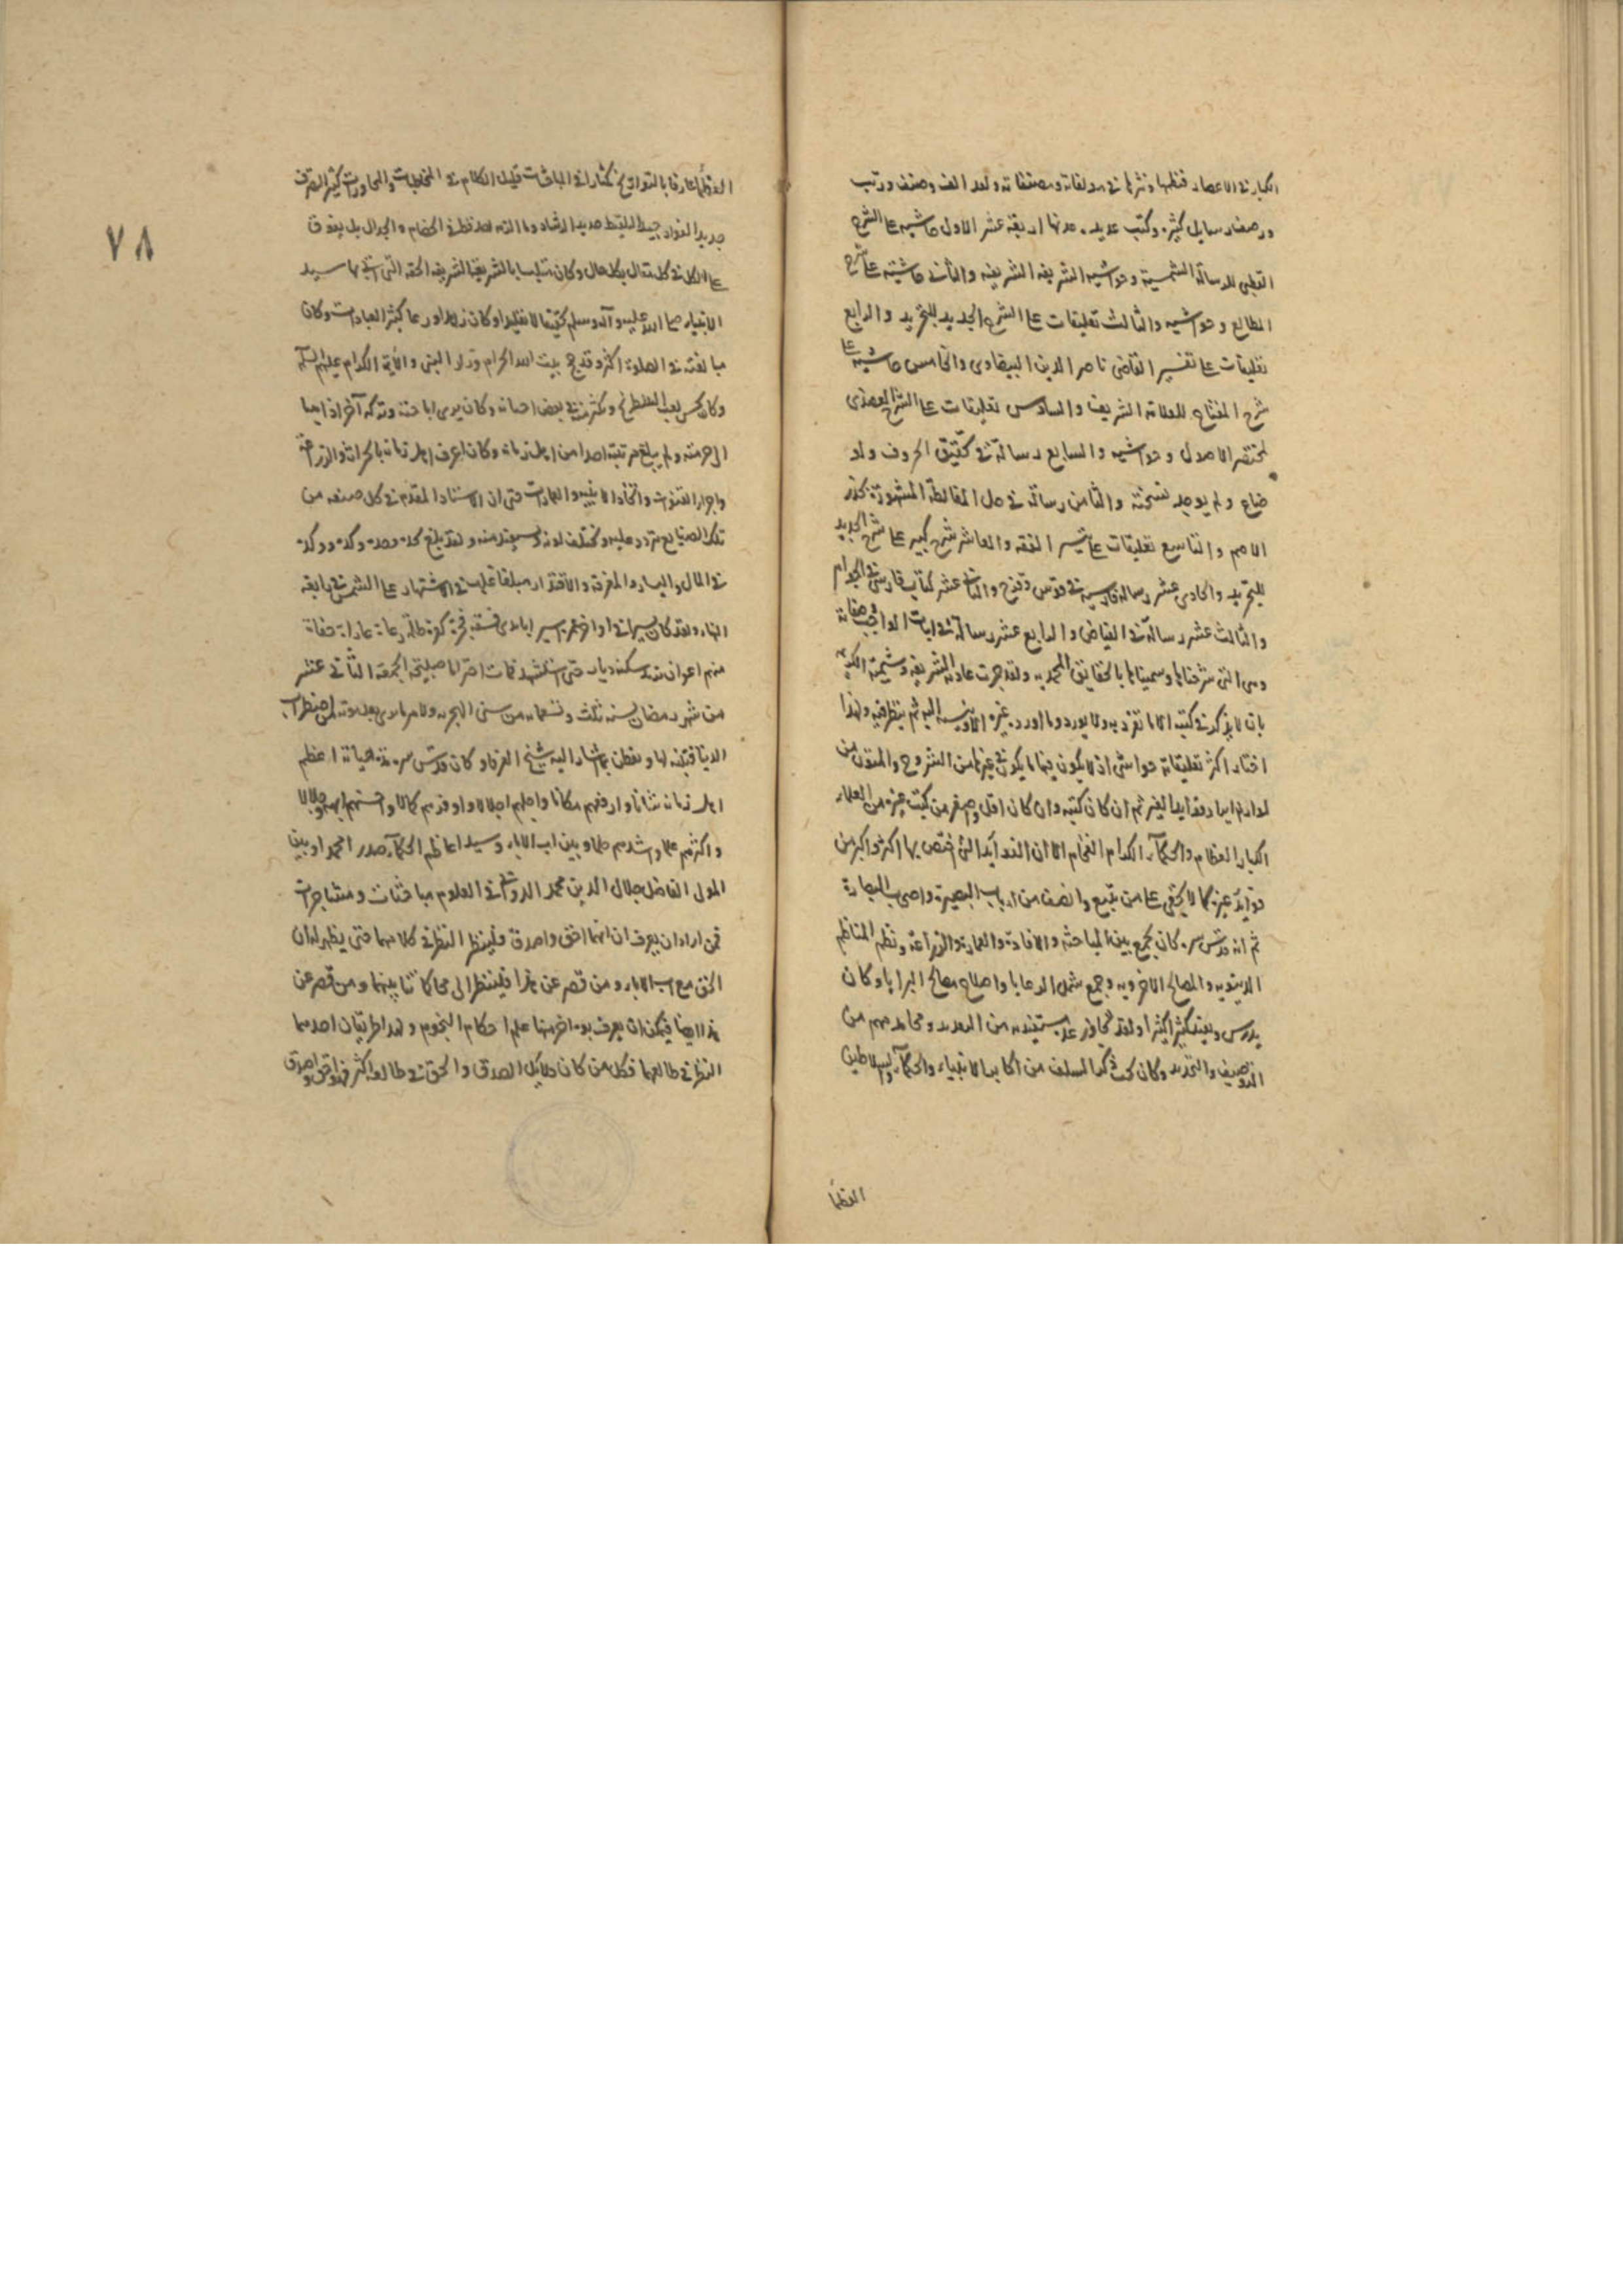 الكبار في الاعصار فنظمها ونثرها في مولفاته ومصنفاته ولقد الف وصنف ورتب
ورصف رسايل كثيرة وكتب عديدة مدتها اربعة عشر الاول حاشية على الشرح
القطبي للرسالة الشمسية وحواشيه الشريفة الشريفية والثاني حاشيته على شرح
المطالع وحواشيه والثالث تعليقات على الشرح الجديد للتجريد والرابع
تعليقات على تفسير القاضي ناصر الدين البيضاوي والخامس حاشية على
شرح المفتاح للعلامة الشريف والسادس تعليقات على الشرح العضدي
لمختصر الاصول وحواشيه والسابع رسالة في تحقيق الحروف ولقد
ضاع ولم يوجد نسخته والثامن رسالة في حل المغالطة المشهورة بجذر
الاصم والتاسع تعليقات على تيسير الفقه والعاشر شرح كبير على شرح الجديد
للتجريد والحادي عشر رسالة فارسية في قوس قزح والثاني عشر كتاب فارسي في الجواهر
والثالث عشر رسالة في الفياض والرابع عشر رسالة في اثبات الواجب وصفاته
وهي التي شرحناها وسميناها بالحقايق المحمدية ولقد جرت عادته الشريفة وشيمته الكريمة
بان لا يذكر في كتبه الا ما تفرد به ولا يورد ما اورده غيره الا وينسبه اليه ثم ينظر فيه ولهذا
اختار اكثر تعليقاته حواشي ان لا يكون فيها ما يكون في غيرها من الشروح والمتون من
لوازم ايراد فوايد الغير ثم ان كان كتبه وان كان اقل واصغر من كتب غيره من العلماء
الكبار العظام والحكماء الكرام الفخام الا ان الفوائد التي اختص بها اكثر واكبر من
فوائد غيره كما لا يخفى على من تتبع وانصف من ارباب البصيرة واصحاب البصارة
ثم انه قدس سره كان يجمع بين المباحثة والافادة والعمارة والزراعة ونظم المناظم
الدينوية والمصالح الاخروية وجمع شمل الرعايا واصلاح مصالح البرايا وكان
يدرس ويفيد كثيرا كثيرا ولقد تجاوز عدد مستفيديه من التعديد ومحامدهم من
التوصيف والتحديد وكان بحث ذكر السلف من اكابر الانبياء والحكماء والسلاطين
العظماء
٧٨
العظماء عارفا بالتواريخ مكثارا في المباحثات قليل الكلام في المخاطبات والمحاورات كثير التصرف
حديد الفؤاد جيد اللقيط
على الكل في كل مقال بكل حال وكان متلبسا بالشريعة الشريفة الحقة التي اتى بها سيد
الانبياء صلى الله عليه وآله وسلم تحقيقا لا تقليدا وكان زاهدا ورعا كثير العبادات وكان
مبالغته في الصلوة اكثر وقد حج بيت الله الحرام وزار النبي والائمة الكرام عليهم السلام
وكان يحسن لعب الشطرنج ويكثر منه في بعض احيانه وكان يرى اباحته وتركه آخرا ذاهبا
الى حرمته ولم يبلغ مرتبته احد من اهل زمانه وكان اعرف اهل زمانه بالحراثة والزراعة
واجراء القنوات واتخاذ الابنية والعمارات حتى ان الاستاد المقدم في كل صنعة من
تلك الصنايع يتردد عليه ويختلف لديه ويستفيد منه ولقد بلغ
في المال واليسار والمعرفة والاقتدار مبلغا غلب في الاشتهار على الشمس في رابعة
النهار ولقد كان يسيرا في اواخر عمره
منهم اعوان حتى استشهد صبيحة الجمعة الثاني عشر
من شهر رمضان لسنة ثلث وتسعماية من سني الهجرية
الدنيا قبيله لها وتفطن بما اشار اليه شيخ العرفاء وكان قدس سره مدة حياته اعظم
اهل زمانه شانا وارفعهم مكانا واجلهم اجلالا واوفرهم كمالا واحسنهم ابهة وجلالا
واكثرهم علما واشدهم حلما وبين اب الاباء وسيد اعاظم الحكماء صدر الحمد او بين
المولى الفاضل جلال الدين محمد الدواني في العلوم مباحثات ومشاجرات
فمن اراد ان يعرف ان ايهما احق واصدق فلينظر النظر في كلامهما حتى يظهر له ان
الحق مع اب الاباء ومن قصر عن هذا فلينظر الى محاكماتنا بينهما ومن قصر عن
هذا ايضا فيمكن ان يعرف بوجه اخر منها علم احكام النجوم ولهذا طريقان احدهما
النظر في طالعهما فكل من كان دلايل الصدق والحق في طالعه اكثر فهو احق واصدق